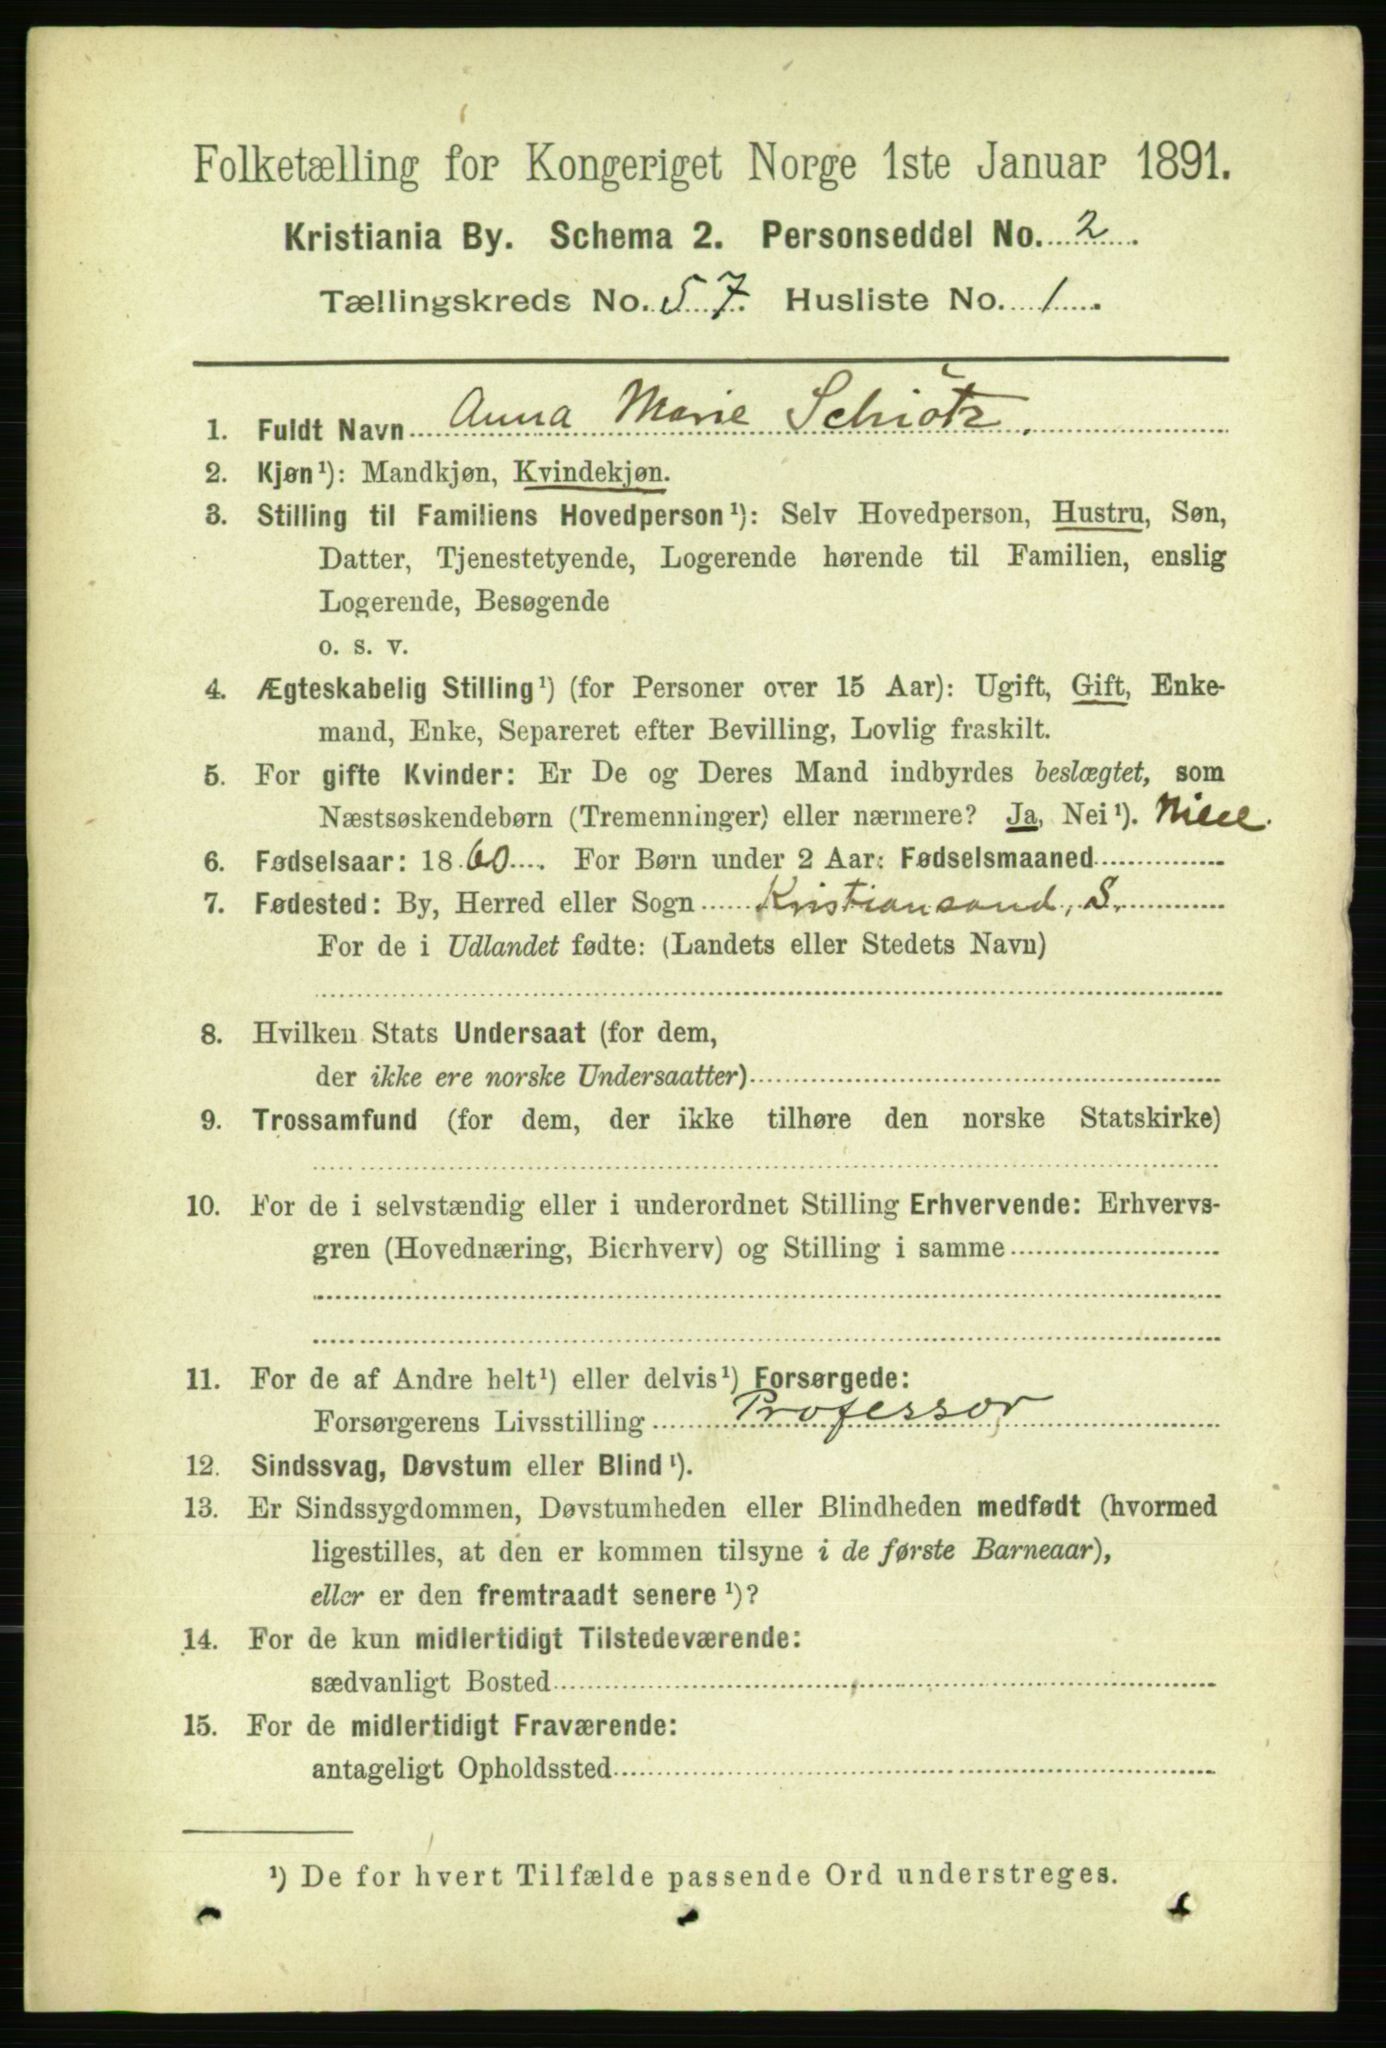 Folketælling for Kongeriget Norge 1ste Januar 1891.
Kristiania By. Schema 2. Personseddel No. 2.
Tællingskreds No. 57. Husliste No. 1.
1. Fuldt Navn Anna Marie Schiötz.
2. Kjøn¹): Mandkjøn, Kvindekjøn.
3. Stilling til Familiens Hovedperson¹): Selv Hovedperson, Hustru, Søn,
Datter, Tjenestetyende, Logerende hørende til Familien, enslig
Logerende, Besøgende
o. s. v.
4. Ægteskabelig Stilling¹) (for Personer over 15 Aar): Ugift, Gift, Enke-
mand, Enke, Separeret efter Bevilling, Lovlig fraskilt.
5. For gifte Kvinder: Er De og Deres Mand indbyrdes beslægtet, som
Næstsøskendebørn (Tremenninger) eller nærmere? Ja, Nei¹). Niece.
6. Fødselsaar: 1860. For Børn under 2 Aar: Fødselsmaaned
7. Fødested: By, Herred eller Sogn Kristiansand, S.
For de i Udlandet fødte: (Landets eller Stedets Navn)
8. Hvilken Stats Undersaat (for dem,
der ikke ere norske Undersaatter)
9. Trossamfund (for dem, der ikke tilhøre den norske Statskirke)
10. For de i selvstændig eller i underordnet Stilling Erhvervende: Erhvervs-
gren (Hovednæring, Bierhverv) og Stilling i samme
11. For de af Andre helt¹) eller delvis¹) Forsørgede:
Forsørgerens Livsstilling Professor
12. Sindssvag, Døvstum eller Blind¹).
13. Er Sindssygdommen, Døvstumheden eller Blindheden medfødt (hvormed
ligestilles, at den er kommen tilsyne i de første Barneaar),
eller er den fremtraadt senere¹)?
14. For de kun midlertidigt Tilstedeværende:
sædvanligt Bosted
15. For de midlertidigt Fraværende:
antageligt Opholdssted
¹) De for hvert Tilfælde passende Ord understreges.